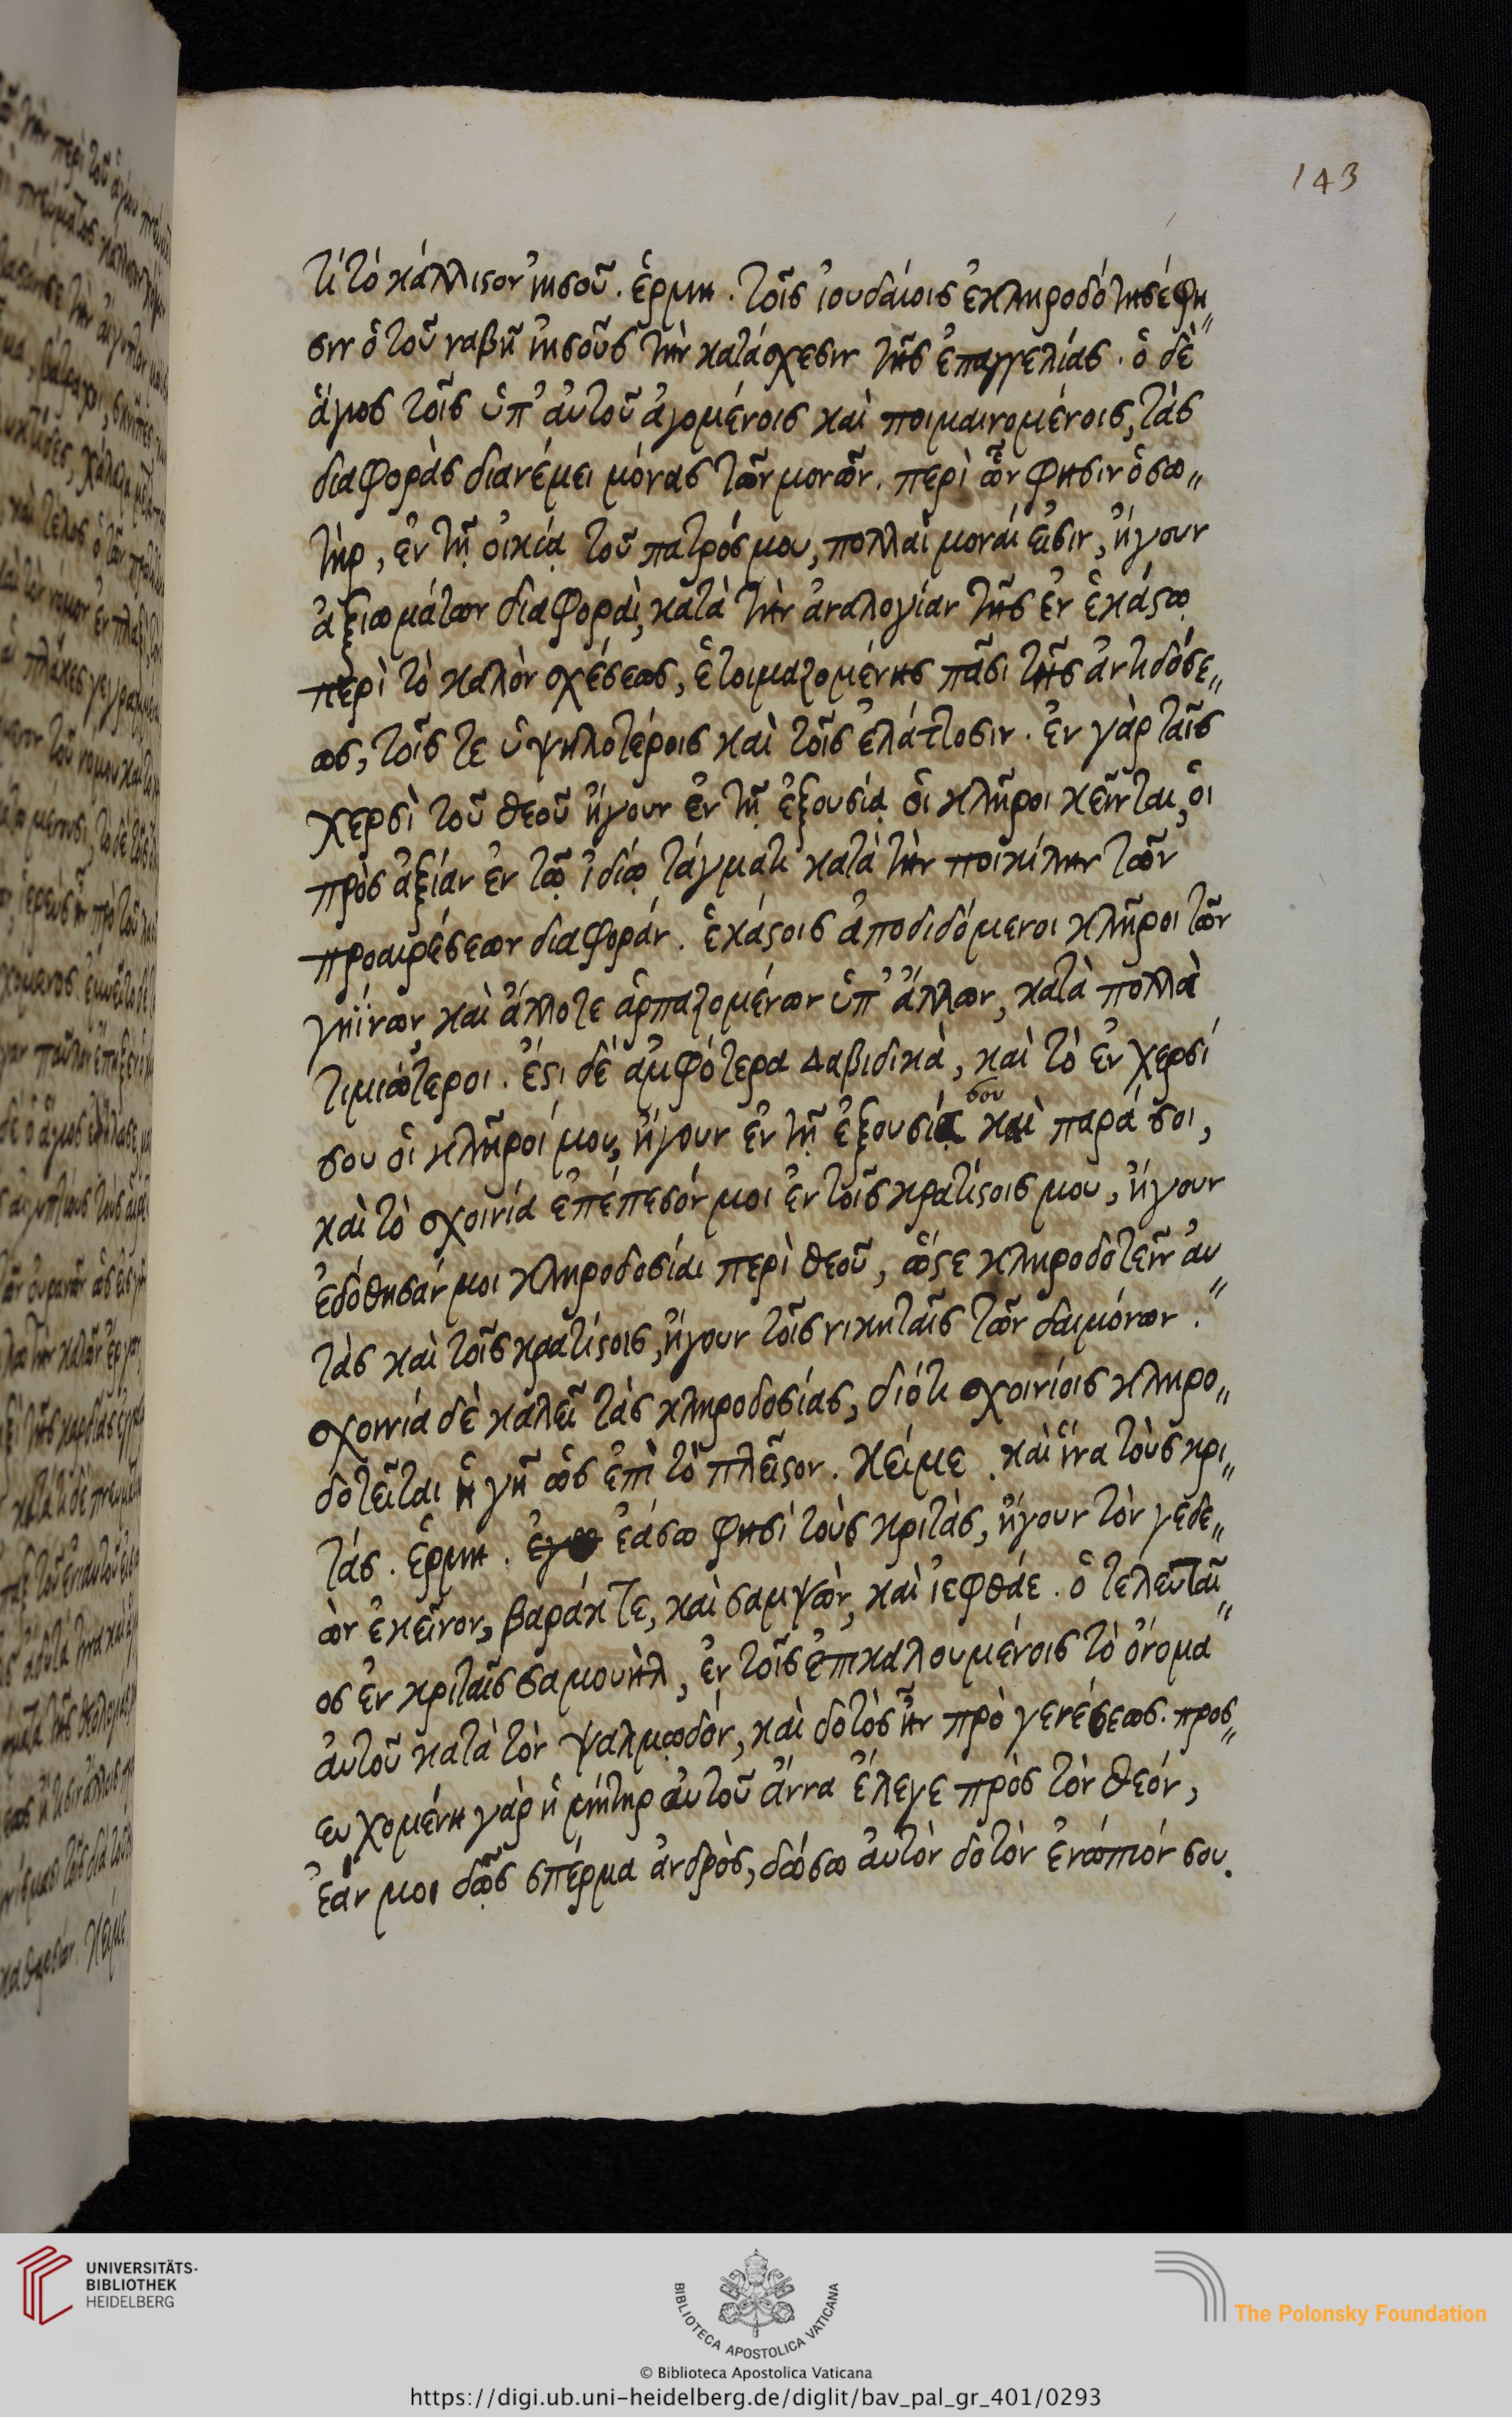 143
τί τὸ κάλλιστον ἰησοῦ. ἑρμη. τοῖς ἰουδαίοις ἐκληροδότησέ φη„
σιν ὁ τοῦ ναβῆ ἰησοῦς τὴν κατάσχεσιν τῆς ἐπαγγελίας. ὁ δὲ
ἅγιος τοῖς ὑπ' αὐτοῦ ἀγομένοις καὶ ποιμαινομένοις, τὰς
διαφορὰς διανέμει μόνας τῶν μονῶν. περὶ ὧν φησιν ὁ σω„
τὴρ, ἐν τῇ οἰκίᾳ τοῦ πατρός μου, πολλαὶ μοναί εἰσιν, ἤγουν
ἀξιωμάτων διαφοραὶ, κατὰ τὴν ἀναλογίαν τῆς ἐν ἑκάστῳ
περὶ τὸ καλὸν σχέσεως, ἑτοιμαζομένης πᾶσι τῆς ἀντιδόσε„
ως, τοῖς τε ὑψηλοτέροις καὶ τοῖς ἐλάττοσιν. ἐν γὰρ ταῖς
χερσὶ τοῦ θεοῦ ἤγουν ἐν τῇ ἐξουσίᾳ οἱ κλῆροι κεῖνται, οἱ
πρὸς ἀξίαν ἐν τῷ ἰδίῳ τάγματι κατὰ τὴν ποικίλην τῶν
προαιρέσεων διαφοράν. ἑκάστοις ἀποδιδόμενοι κλῆροι τῶν
γηΐνων, καὶ ἄλλοτε ἁρπαζομένων ὑπ' ἄλλων, κατὰ πολλὰ
τιμιώτεροι. ἔστι δὲ ἀμφότερα Δαβιδικὰ, καὶ τὸ ἐν χερσί
σου οἱ κλῆροί μου, ἤγουν ἐν τῇ ἐξουσίᾳ σου καὶ παρά σοι,
καὶ τὸ σχοινία ἐπέπεσόν μοι ἐν τοῖς κρατίστοις μου, ἤγουν
ἐδόθησάν μοι κληροδοσίαι περὶ θεοῦ, ὥστε κληροδοτεῖν αὐ„
τὰς καὶ τοῖς κρατίστοις, ἤγουν τοῖς νικηταῖς τῶν δαιμόνων.
σχοινία δὲ καλεῖ τὰς κληροδοσίας, διότι σχοινίοις κληρο„
δοτεῖται ἡ γῆ ὡς ἐπὶ τὸ πλεῖστον. κείμε. καὶ ἵνα τοὺς κρι„
τάς. ἑρμη. ἐάσω φησὶ τοὺς κριτὰς, ἤγουν τὸν γεδε„
ὼν ἐκεῖνον, βαράκ τε, καὶ σαμψὼν, καὶ ἰεφθάε. ὁ τελευταῖ„
ος ἐν κριταῖς σαμουὴλ, ἐν τοῖς ἐπικαλουμένοις τὸ ὄνομα
αὐτοῦ κατὰ τὸν ψαλμῳδόν, καὶ δοτὸς ἦν πρὸ γενέσεως. προσ„
ευχομένη γὰρ ἡ μήτηρ αὐτοῦ ἄννα ἔλεγε πρὸς τὸν θεόν,
ἐάν μοι δῷς σπέρμα ἀνδρὸς, δώσω αὐτὸν δοτὸν ἐνώπιόν σου.
UNIVERSITÄTS-
BIBLIOTHEK
HEIDELBERG
BIBLIOTECA APOSTOLICA VATICANA
The Polonsky Foundation
© Biblioteca Apostolica Vaticana
https://digi.ub.uni-heidelberg.de/diglit/bav_pal_gr_401/0293